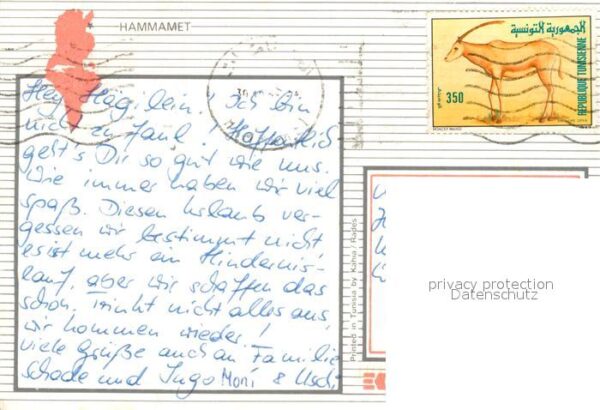 HAMMAMET
الجمهورية التونسية
REPUBLIQUE TUNISIENNE
350
Hey Hägilein! Ich bin
nich zu faul. Hoffentlich
geht's Dir so gut wie uns.
Wie immer haben wir viel
spaß. Diesen Urlaub ver-
gessen wir bestimmt nicht,
es ist mehr ein Hindernis-
lauf, aber wir schaffen das
schon, trinkt nicht alles aus
wir kommen wieder!
viele grüße auch an Familie
Schade und Ingo Moni & Uschi
Printed in Tunisia by Kahia / Rades
privacy protection
Datenschutz